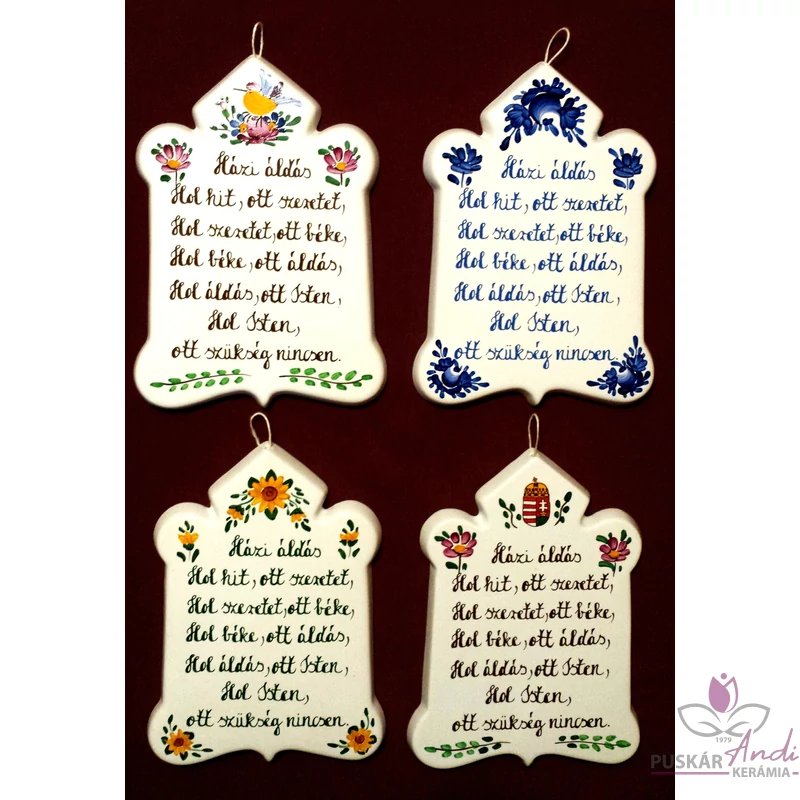 Házi áldás
Hol hit, ott szeretet,
Hol szeretet, ott béke,
Hol béke, ott áldás,
Hol áldás, ott Isten,
Hol Isten,
ott szükség nincsen.
Házi áldás
Hol hit, ott szeretet,
Hol szeretet, ott béke,
Hol béke, ott áldás,
Hol áldás, ott Isten,
Hol Isten,
ott szükség nincsen.
Házi áldás
Hol hit, ott szeretet,
Hol szeretet, ott béke,
Hol béke, ott áldás,
Hol áldás, ott Isten,
Hol Isten,
ott szükség nincsen.
Házi áldás
Hol hit, ott szeretet,
Hol szeretet, ott béke,
Hol béke, ott áldás,
Hol áldás, ott Isten,
Hol Isten,
ott szükség nincsen.
1979
PUSKÁR Andi
KERÁMIA